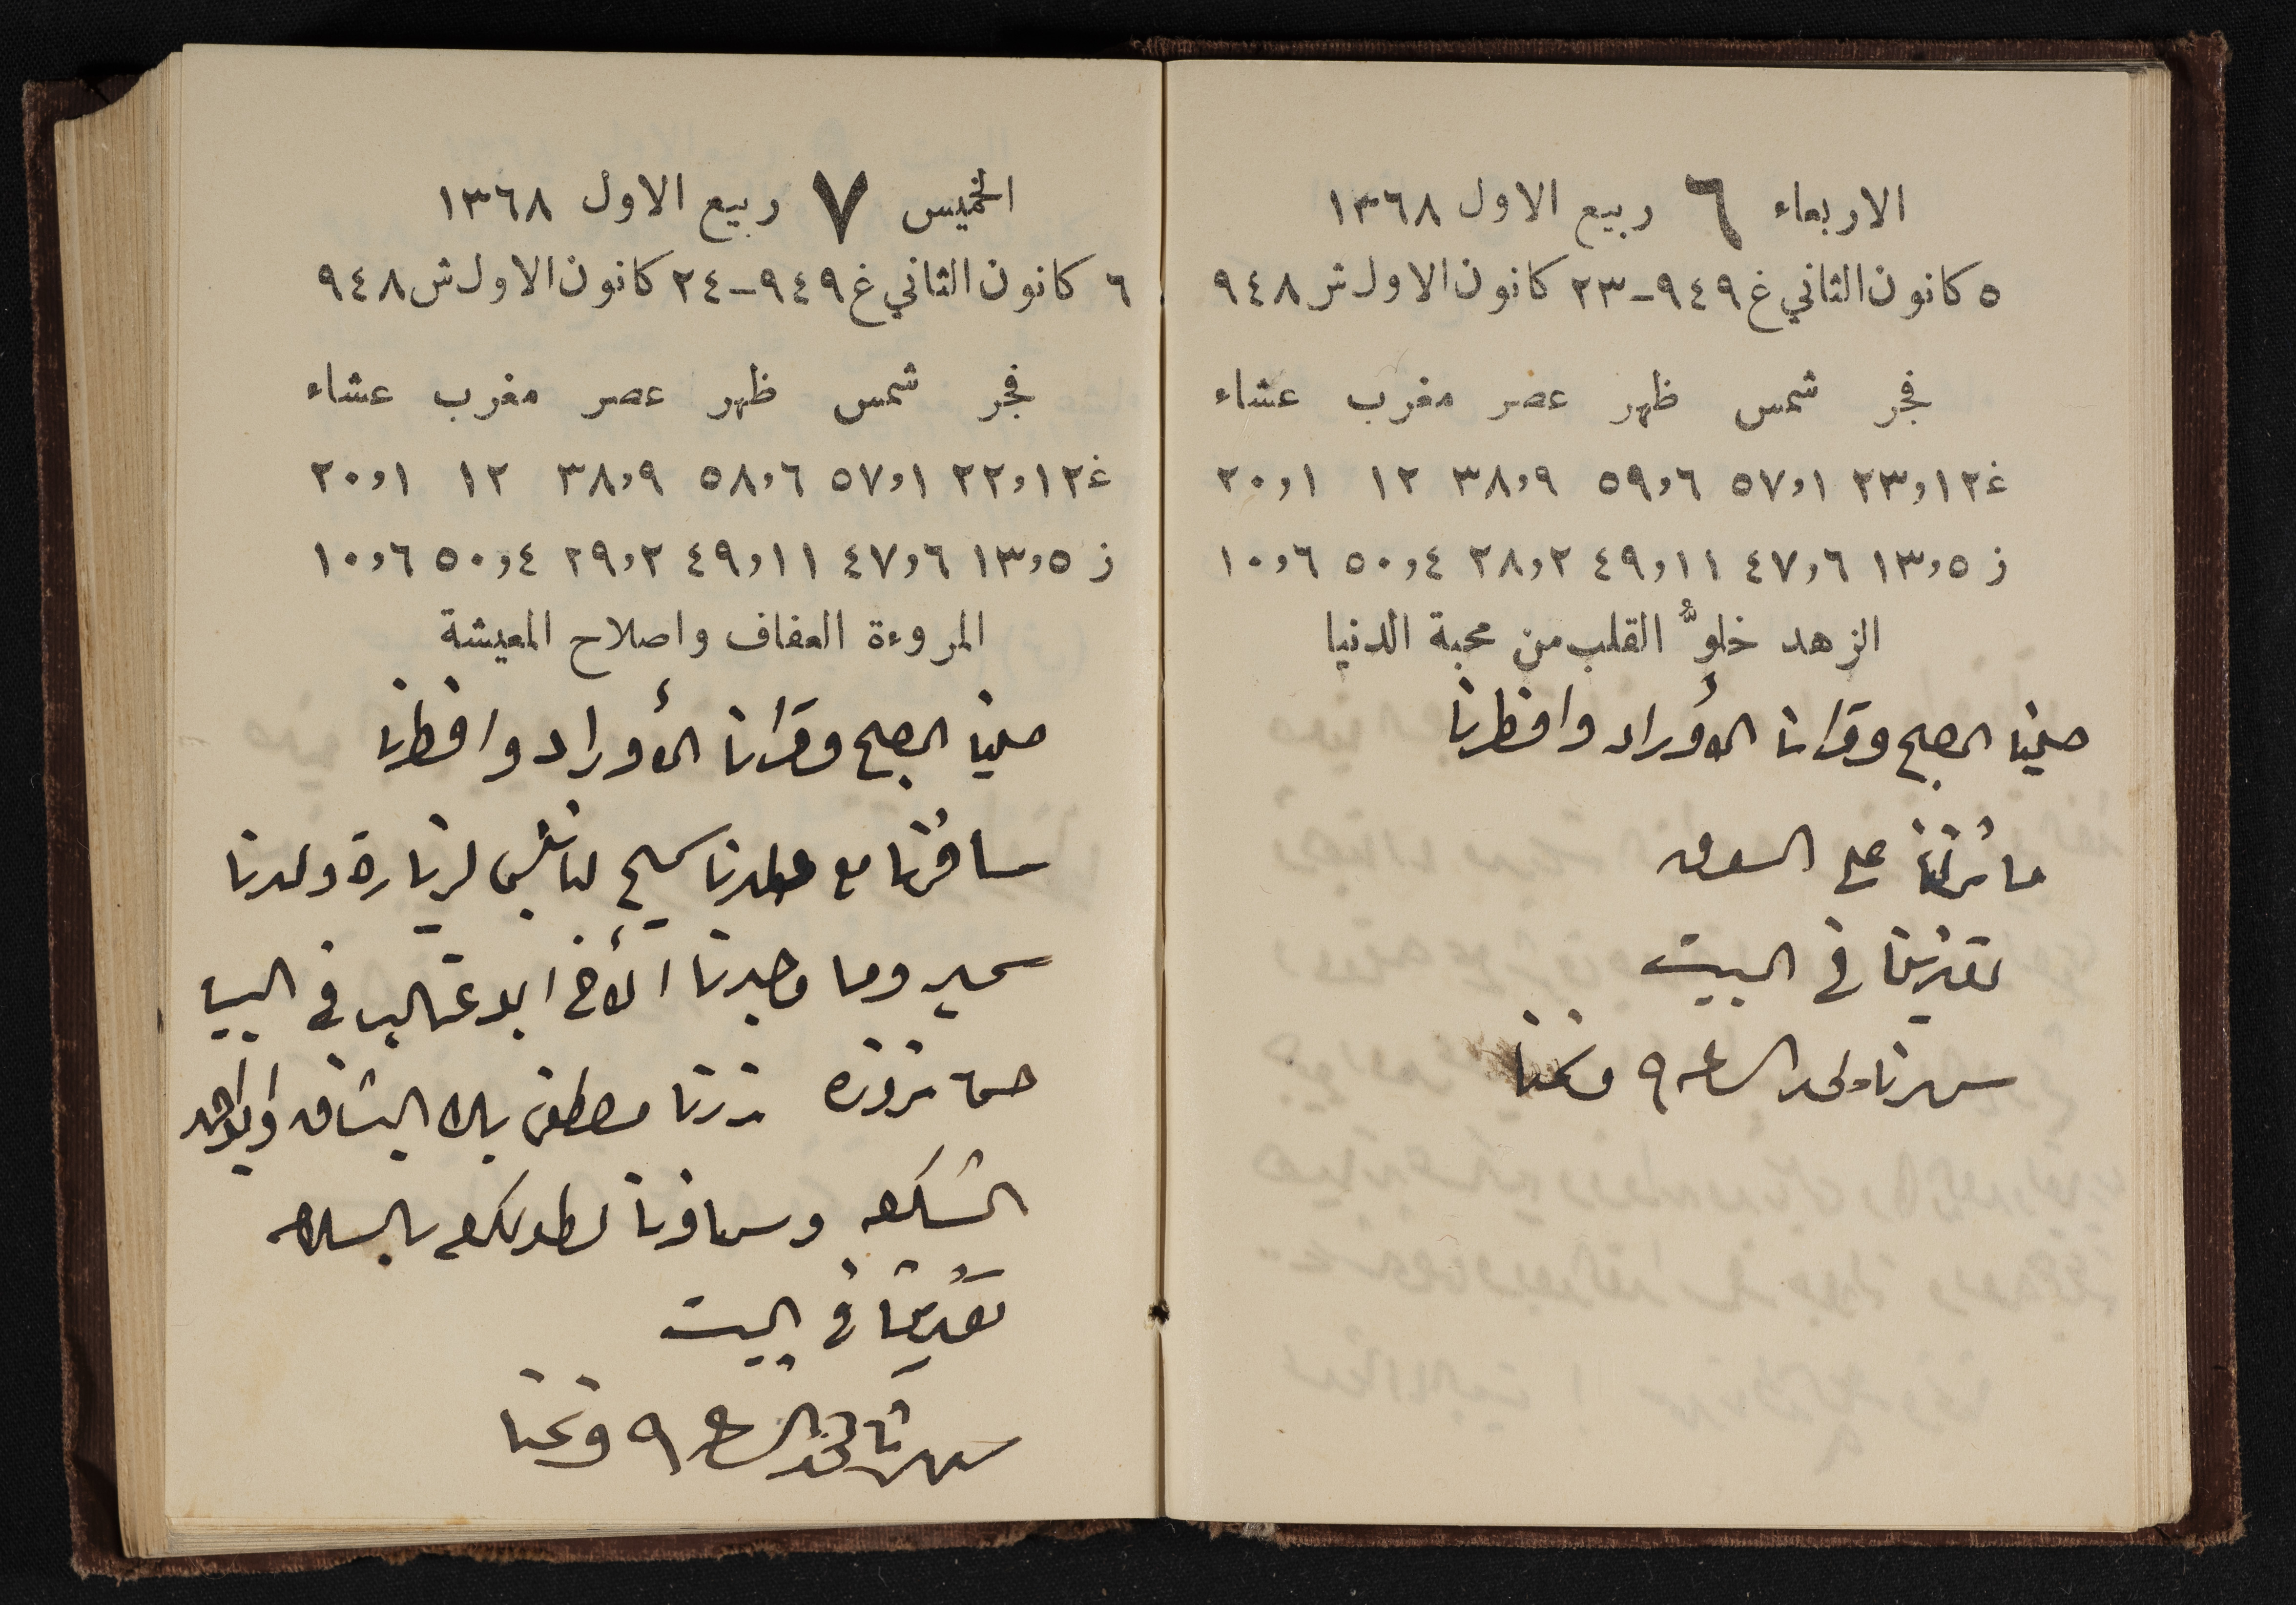 الاربعاء ٦ ربيع الاول ١٣٦٨
٥ كانون الثاني غ ٩٤٩-٢٣ كانون الاول ش ٩٤٨
فجر شمس ظهر عصر مغرب عشاء
غ ١٢,٢٣ ١,٥٧ ٦,٥٩ ٩,٣٨ ١٢ ١,٢٠
ز ٥,١٣ ٦,٤٧ ١١,٤٩ ٢,٢٨ ٤,٥٠ ٦,١٠
الزهد خلوُّ القلب من محبة الدنيا
صلينا الصبح وقرأنا الأوراد وافطرنا
ما نزلنا على السوق
تغدينا في البيت
سهرنا ولحد الساعه ٩ ونمنا
الخميس ٧ ربيع الاول ١٣٦٨
٦ كانون الثاني غ ٩٤٩-٢٤ كانون الاول ش ٩٤٨
فجر شمس ظهر عصر مغرب عشاء
غ ١٢,٢٢ ١,٥٧ ٦,٥٨ ٩,٣٨ ١٢ ١,٢٠
ز ٥,١٣ ٦,٤٧ ١١,٤٩ ٢,٢٩ ٤,٥٠ ٦,١٠
المروءة العفاف واصلاح المعيشة
صلينا الصبح وقرأنا الأوراد وافطرنا
سافرنا مع ولدنا سميح لنابلس لزيارة ولدنا
سمير وما وجدنا الأخ ابو غالب في البيت
حتى نزوره زرنا مصطفى بك الشاف وابو احمد
الشكعه وسافرنا لطولكرم بالسلامه
تغدينا في البيت
سهرنا لحد الساعه ٩ ونمنا